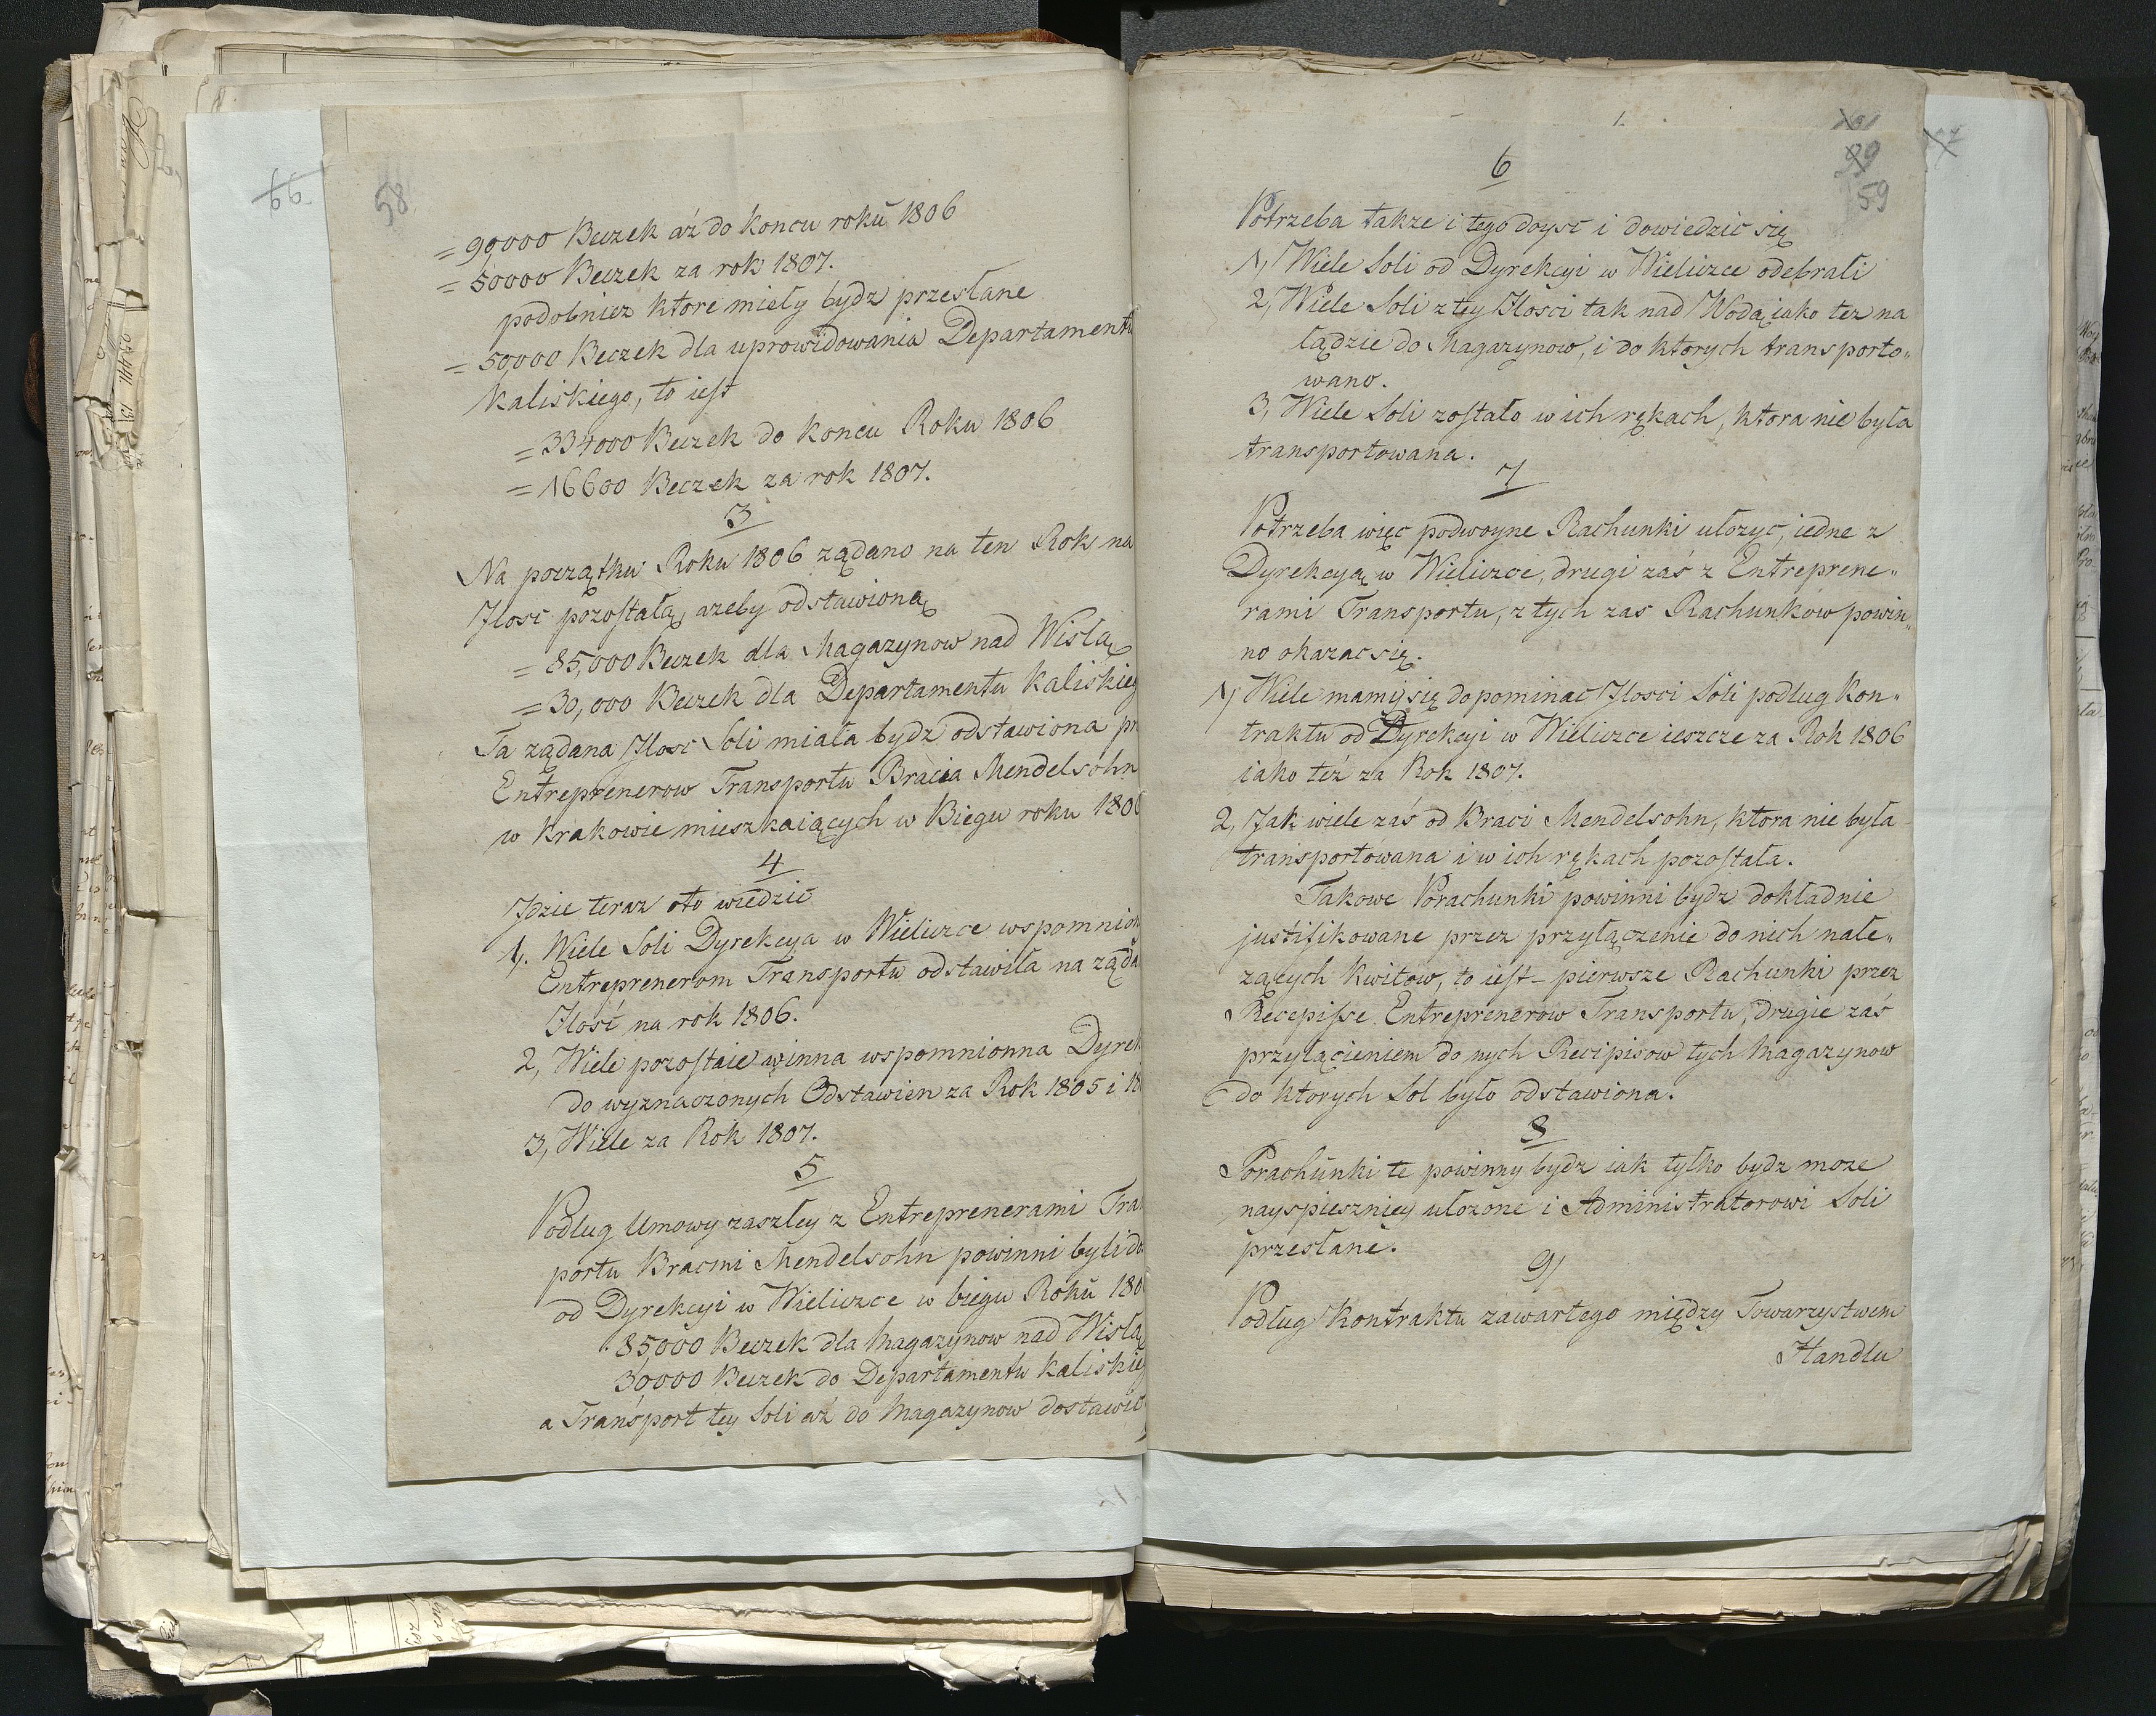 66
58
= 90,000 Beczek aż do Koncu roku 1806
= 50000 Beczek za rok 1807.
podobniez ktore miely bydz przesłane
= 50,000 Beczek dla uprowidowania Departamentu
Kaliskiego, to iest
= 334000 Beczek do Koncu Roku 1806
= 16600 Beczek za rok 1807.
3
Na początku Roku 1806 ządano na ten Rok na
Jlosc pozostałą, azeby odstawioną
= 85,000 Beczek dla Magazynow nad Wisłą
= 30,000 Beczek dla Departamentu Kaliskieg
Ta ządana Jlosc Soli miała bydz odstawiona pr
Entreprenerow Transportu Bracia Mendelsohn
w Krakowie mieszkaiących w Biegu roku 180
4
Jdzie teraz oto wiedzic
1, Wiele Soli Dyrekcya w Wieliczce wspomnion
Entreprenerom Transportu odstawiła na ząda
Jlość na rok 1806.
2, Wiele pozostaie winna wspomnionna Dyrek
do wyznaczonych Odstawien za Rok 1805 i 18
3, Wiele za Rok 1807.
5
Podług Umowy zaszłey z Entreprenerami Tra
portu Bracmi Mendelsohn powinni byli do
od Dyrekcyi w Wieliczce w biegu Roku 180
85,000 Beczek dla Magazynow nad Wisłą
30,000 Beczek do Departamentu Kaliskieg
a Transport tey Soli aż do Magazynow dostawic
99
59
6
Potrzeba takze i tego doysc i dowiedzic się
1, Wiele Soli od Dyrekcyi w Wieliczce odebrali
2, Wiele Soli z tey Jlosci tak nad Wodą iako tez na
lądzie do Magazynow, i do ktorych transporto„
wano.
3, Wiele Soli zostało w ich rękach, ktora nie była
transportowana.
7
Potrzeba więc podwoyne Rachunki ułozyc, iedne z
Dyrekcyą w Wieliczce, drugi zaś z Entreprene„
rami Transportu, z tych zas Rachunkow powin„
no okazac się.
1, Wiele mamy się dopominac Jlosci Soli podług Kon„
traktu od Dyrekcyi w Wieliczce ieszcze za Rok 1806
iako też za Rok 1807.
2, Jak wiele zaś od Braci Mendelsohn, ktora nie była
transportowana i w ich rękach pozostała.
Takowe Porachunki powinni bydz dokładnie
justifikowane przez przyłączenie do nich nale„
zących Kwitow, to iest - pierwsze Rachunki przez
Recepisse Entreprenerow Transportu, drugie zaś
przyłącieniem do nych Recipisow tych Magazynow
do ktorych Sol było odstawiona.
8
Porachunki te powinny bydz iak tylko bydz moze
nayspieszniey ułozone i Administratorowi Soli
przesłane.
9
Podług Kontraktu zawartego między Towarzystwem
Handlu